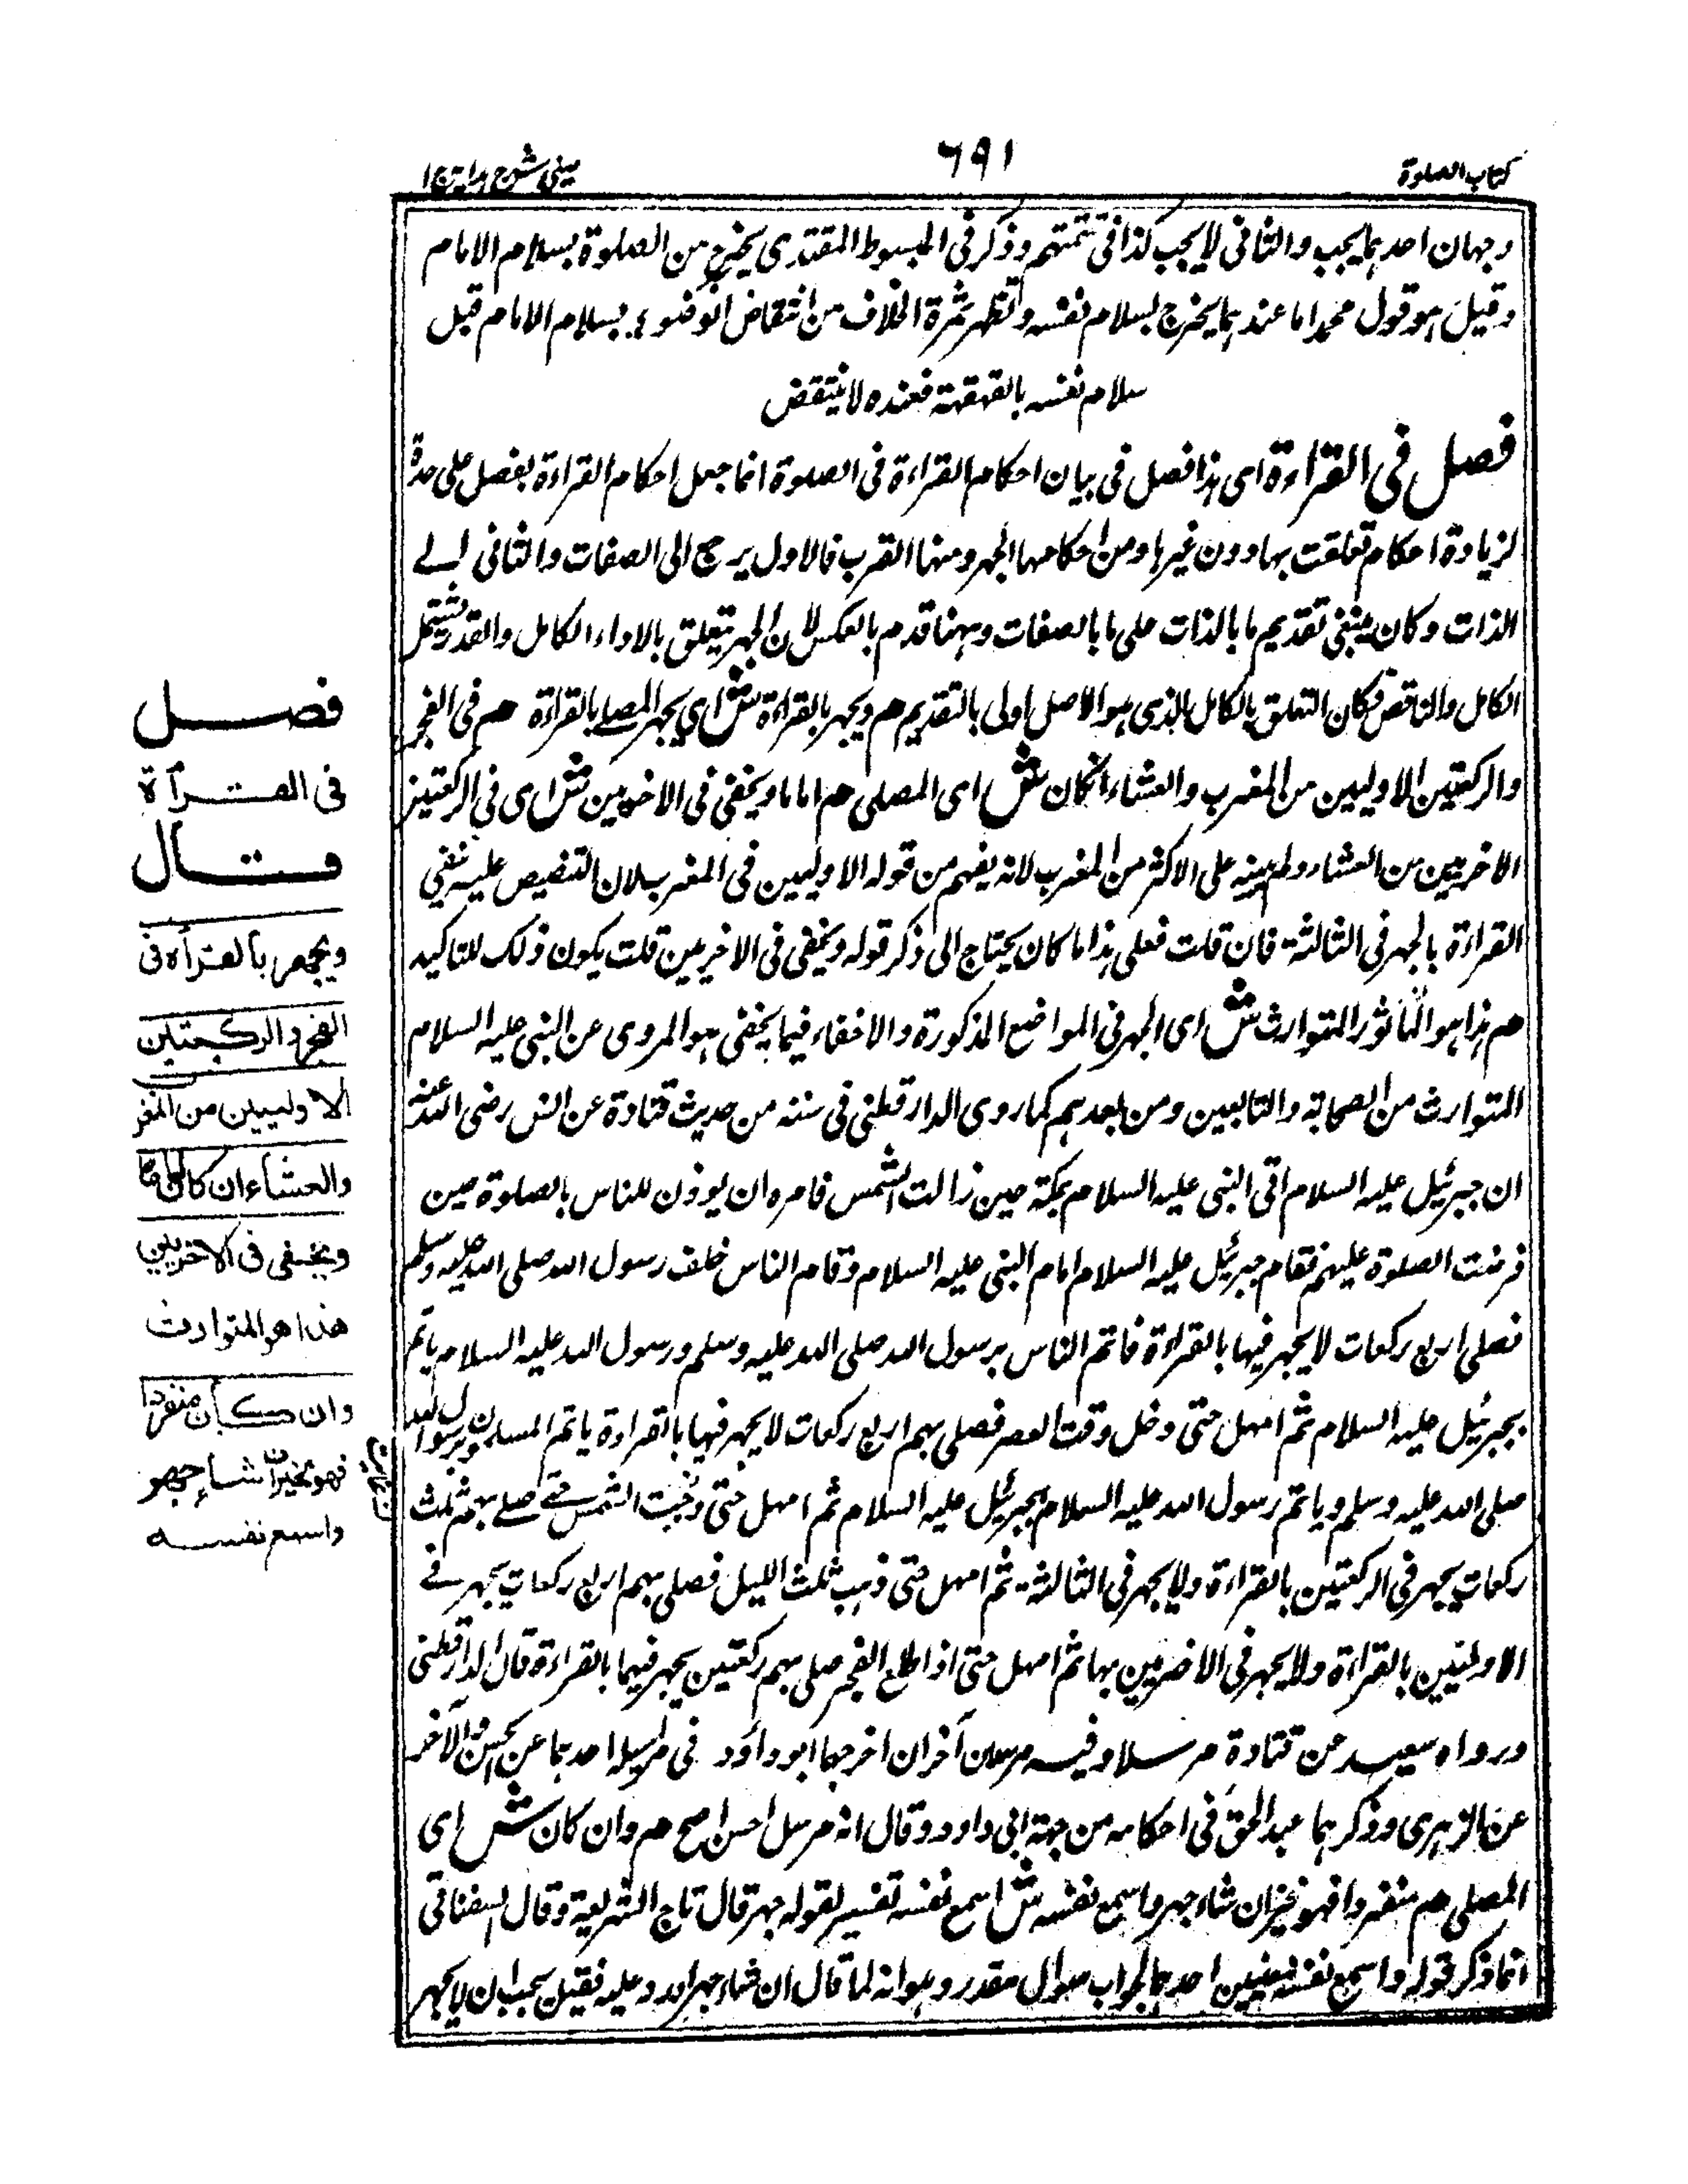 كتاب الصلوة
٦٩١
عينى شرح هداية ج ١
وجهان احدهما يجب والثانى لا يجب كذا فى تتمتهم وذكر فى المبسوط المقتدى يخرج من الصلوة بسلام الامام
وقيل هو قول محمد اما عندهما يخرج بسلام نفسه وتظهر ثمرة الخلاف من انتقاض الوضوء بسلام الامام قبل
سلام نفسه بالقهقهة فعنده لا ينتقض
فصل فى القراءة اى هذا فصل فى بيان احكام القراءة فى الصلوة انما جعل احكام القراءة بفصل على حدة
لزيادة احكام تعلقت بها دون غيرها ومن احكامها الجهر ومنها القرب فالاول يرجع الى الصفات والثانى الى
الذات وكان ينبغى تقديم ما بالذات على ما بالصفات وههنا قدم بالعكس لان الجهر يتعلق بالاداء الكامل والقدر يشتمل
الكامل والناقص فكان التعلق بالكامل الذى هو الاصل اولى بالتقديم هم ويجهر بالقراءة ش اى يجهر المصلى بالقراءة هم فى الفجر
والركعتين الاوليين من المغرب والعشاء انكان ش اى المصلى هم اماما ويخفى فى الاخريين ش اى فى الركعتين
الاخريين من العشاء ولم يبينه على الاكثر من المغرب لانه يفهم من قوله الاوليين فى المغرب لان التنصيص عليه نفى
القراءة بالجهر فى الثالثة فان قلت فعلى هذا ما كان يحتاج الى ذكر قوله ويخفى فى الاخريين قلت يكون ذلك للتاكيد
هم هذا هو المأثور المتوارث ش اى الجهر فى المواضع المذكورة والاخفاء فيما يخفى هو المروى عن النبى عليه السلام
المتوارث من الصحابة والتابعين ومن بعدهم كما روى الدارقطنى فى سننه من حديث قتادة عن انس رضى الله عنه
ان جبرئيل عليه السلام اتى النبى عليه السلام بمكة حين زالت الشمس فامره ان يوذن للناس بالصلوة حين
فرضت الصلوة عليهم فقام جبرئيل عليه السلام امام النبى عليه السلام وقام الناس خلف رسول الله صلى الله عليه وسلم
فصلى اربع ركعات لا يجهر فيها بالقراءة فاتم الناس برسول الله صلى الله عليه وسلم ورسول الله عليه السلام ياتم
بجبرئيل عليه السلام ثم امهل حتى دخل وقت العصر فصلى بهم اربع ركعات لا يجهر فيها بالقراءة ياتم المسلمون برسول الله
صلى الله عليه وسلم وياتم رسول الله عليه السلام بجبرئيل عليه السلام ثم امهل حتى وجبت الشمس حتى صلى بهم ثلث
ركعات يجهر فى الركعتين بالقراءة ولا يجهر فى الثالثة ثم امهل حتى ذهب ثلث الليل فصلى بهم اربع ركعات يجهر فى
الاوليين بالقراءة ولا يجهر فى الاخريين بها ثم امهل حتى اذا طلع الفجر صلى بهم ركعتين يجهر فيهما بالقراءة قال الدارقطنى
ورواه سعيد عن قتادة مرسلا وفيه مرسلان آخران اخرجهما ابو داؤد فى مراسيله احدهما عن الحسن والآخر
عن الزهرى وذكرهما عبد الحق فى احكامه من جهة ابى داود وقال انه مرسل احسن اصح هم وان كان ش اى
المصلى هم منفردا فهو مخير ان شاء جهر واسمع نفسه ش اسمع نفسه تفسير لقوله جهر قال تاج الشريعة وقال السغناقى
انما ذكر قوله واسمع نفسه لمعنيين احدهما لجواب سوال مقدر وهو انه لما قال ان شاء جهر اورد عليه فقيل يجب ان لا يجهر
فصل
فى القرآة
قال
ويجهر بالقرأة فى
الفجر والركعتين
الاوليين من المغرب
والعشاء ان كان اماما
ويخفى فى الاخريين
هذا هو المتوارث
وان كان منفردا
فهو مخير ان شاء جهر
واسمع نفسه